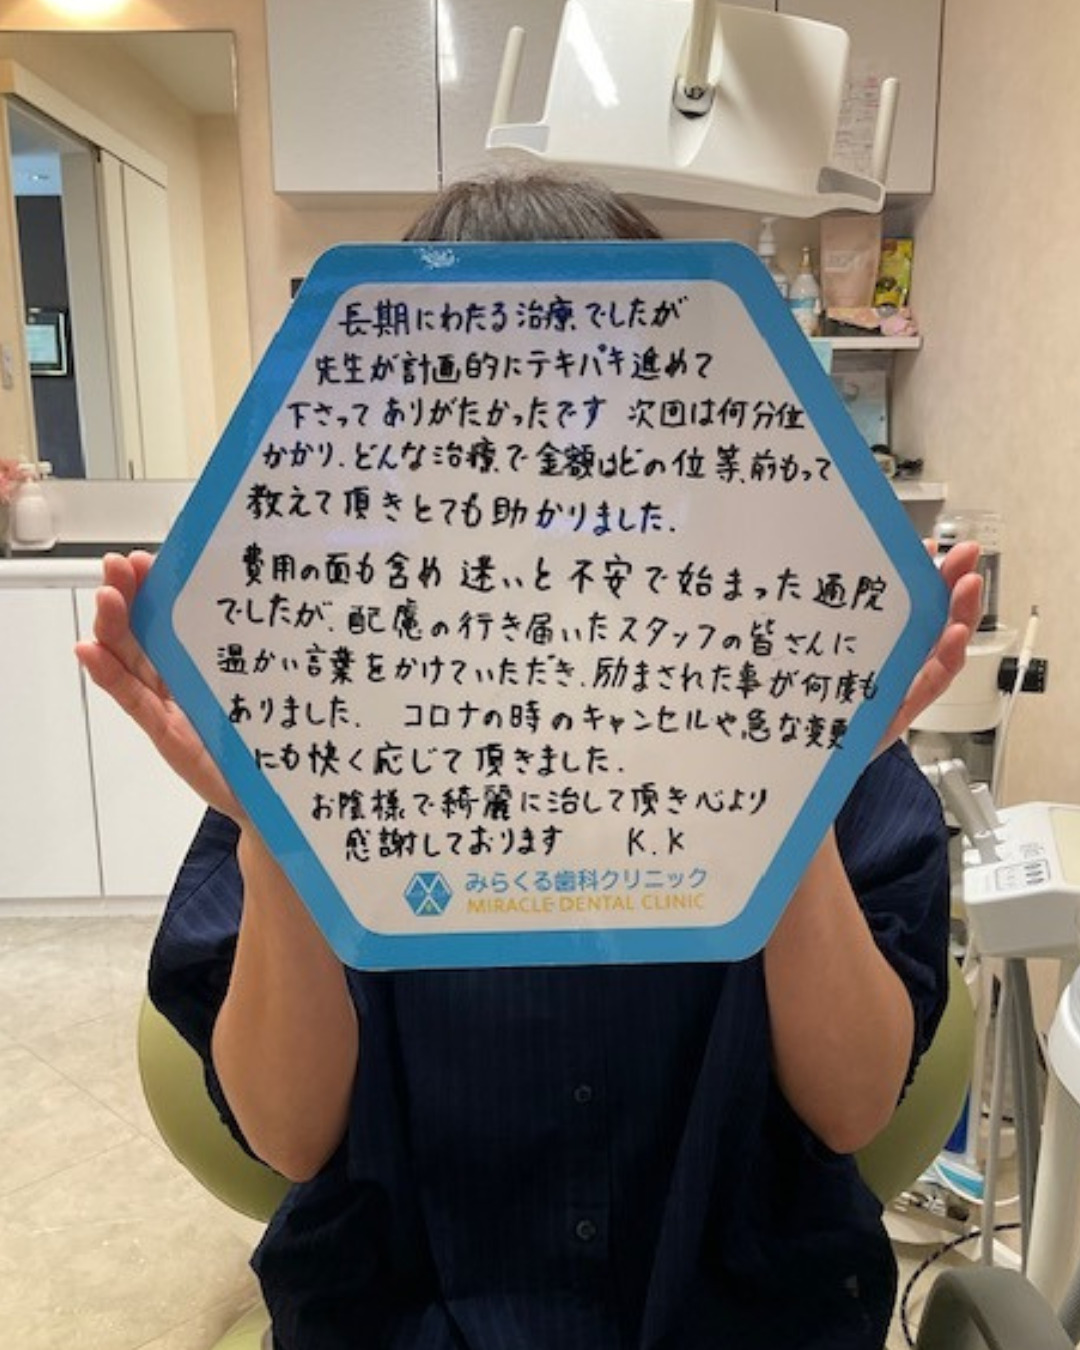 長期にわたる治療でしたが
先生が計画的にテキパキ進めて
下さってありがたかったです 次回は何分位
かかり、どんな治療で金額はどの位等、前もって
教えて頂きとても助かりました.
費用の面も含め 迷いと不安で始まった通院
でしたが、配慮の行き届いたスタッフの皆さんに
温かい言葉をかけていただき、励まされた事が何度も
ありました. コロナの時のキャンセルや急な変更
にも快く応じて頂きました.
お陰様で綺麗に治して頂き心より
感謝しております K.K
みらくる歯科クリニック
MIRACLE DENTAL CLINIC